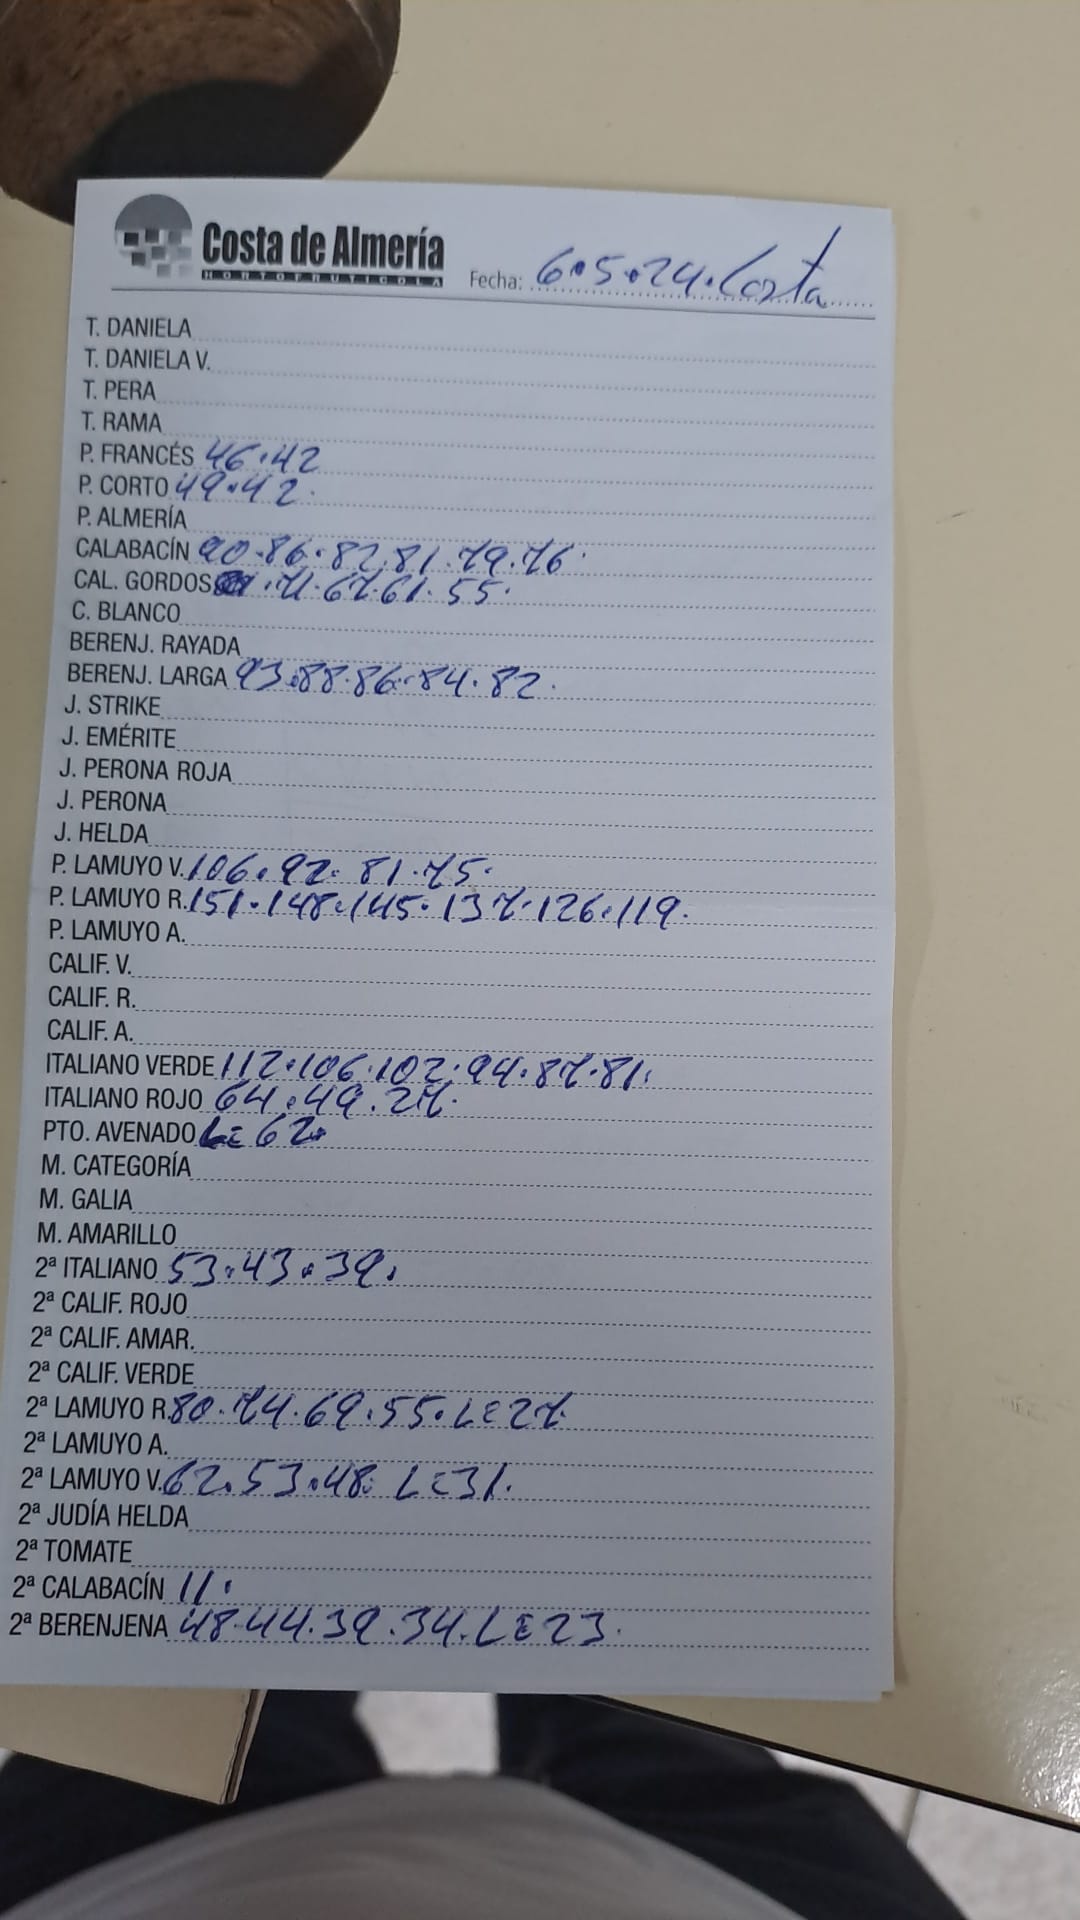 Costa de Almería
HORTOFRUTICOLA
Fecha: 6.5.24. Costa
T. DANIELA
T. DANIELA V.
T. PERA
T. RAMA
P. FRANCÉS 46.42
P. CORTO 49.42.
P. ALMERÍA
CALABACÍN 90.86.82.81.79.76.
CAL. GORDOS .71.67.61.55.
C. BLANCO
BERENJ. RAYADA
BERENJ. LARGA 93.88.86.84.82.
J. STRIKE
J. EMÉRITE
J. PERONA ROJA
J. PERONA
J. HELDA
P. LAMUYO V. 106.92.81.75.
P. LAMUYO R. 151.148.145.137.126.119.
P. LAMUYO A.
CALIF. V.
CALIF. R.
CALIF. A.
ITALIANO VERDE 112.106.102.94.87.81.
ITALIANO ROJO 64.49.27.
PTO. AVENADO 62.
M. CATEGORÍA
M. GALIA
M. AMARILLO
2ª ITALIANO 53.43.39.
2ª CALIF. ROJO
2ª CALIF. AMAR.
2ª CALIF. VERDE
2ª LAMUYO R. 80.74.69.55.LE27.
2ª LAMUYO A.
2ª LAMUYO V. 62.53.48. LE31.
2ª JUDÍA HELDA
2ª TOMATE
2ª CALABACÍN 11.
2ª BERENJENA 48.44.39.34.LE23.